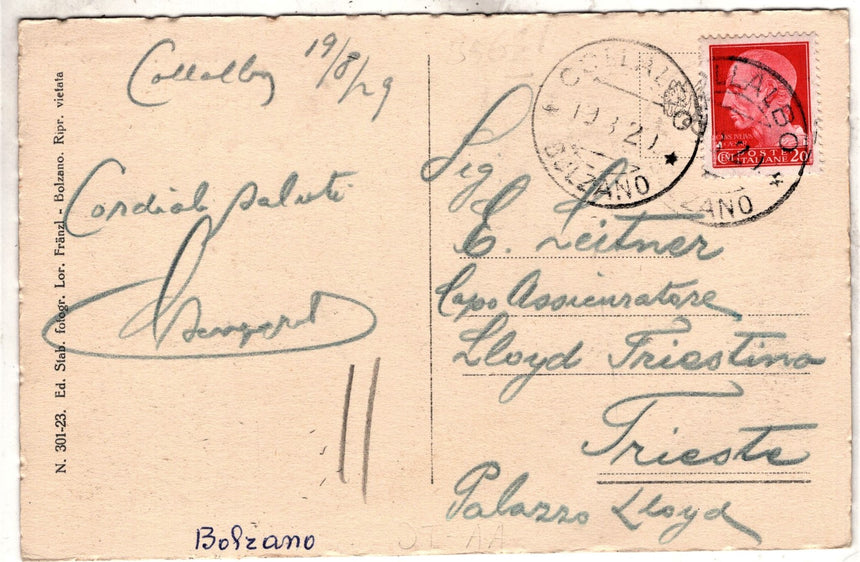 Collalbo 19/8/29
Cordiali saluti
N. 301-23. Ed. Stab. fotogr. Lor. Fränzl - Bolzano. Ripr. vietata
Bolzano
COLLALBO
19.8.29
BOLZANO
COLLALBO
ZANO
POSTE
ITALIANE
CENT 20
Sig
E. Leitner
Capo Assicuratore
Lloyd Triestino
Trieste
Palazzo Lloyd